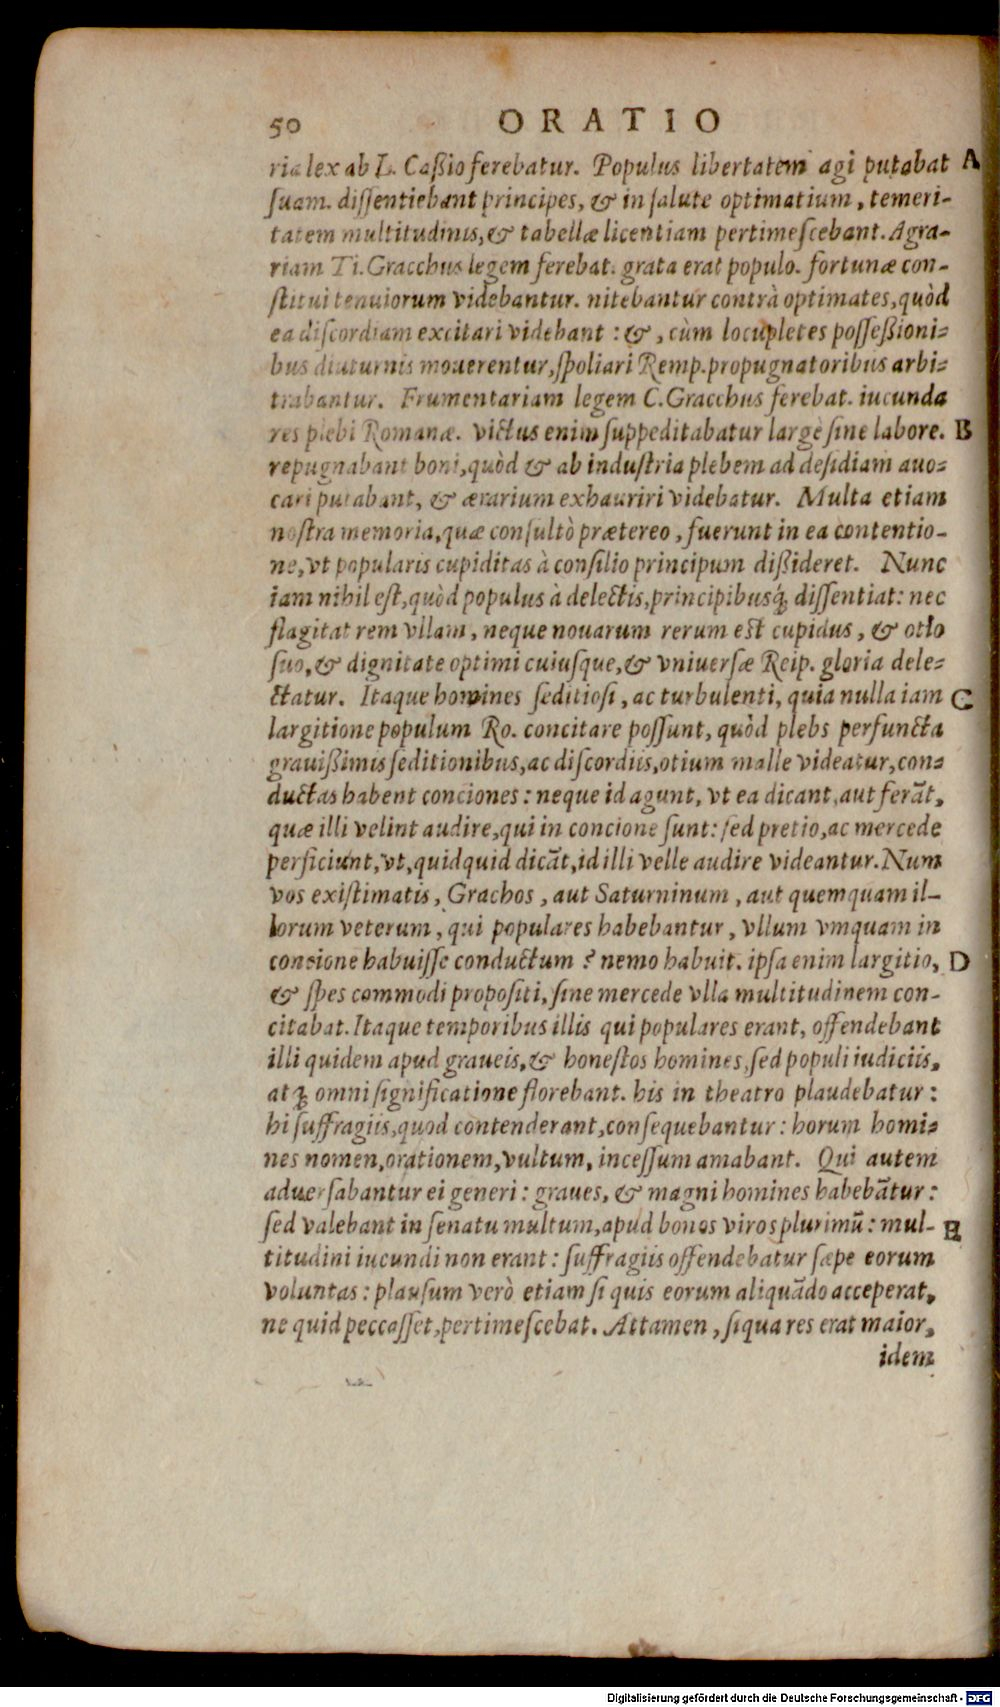 50 ORATIO
ria lex ab L. Caßio ferebatur. Populus libertatem agi putabat A
ſuam. diſſentiebant principes, & in ſalute optimatium, temeri-
tatem multitudinis, & tabellæ licentiam pertimeſcebant. Agra-
riam Ti. Gracchus legem ferebat. grata erat populo. fortunæ con-
ſtitui tenuiorum videbantur. nitebantur contrà optimates, quòd
ea diſcordiam excitari videbant : &, cùm locupletes poſſeßioni-
bus diuturnis mouerentur, ſpoliari Remp. propugnatoribus arbi-
trabantur. Frumentariam legem C. Gracchus ferebat. iucunda
res plebi Romanæ. victus enim ſuppeditabatur largè ſine labore. B
repugnabant boni, quòd & ab induſtria plebem ad deſidiam auo-
cari putabant, & ærarium exhauriri videbatur. Multa etiam
noſtra memoria, quæ conſultò prætereo, fuerunt in ea contentio-
ne, vt popularis cupiditas à conſilio principum dißideret. Nunc
iam nihil eſt, quòd populus à delectis, principibusq́; diſſentiat: nec
flagitat rem vllam, neque nouarum rerum eſt cupidus, & otio
ſuo, & dignitate optimi cuiuſque, & vniuerſæ Reip. gloria dele-
ctatur. Itaque homines ſeditioſi, ac turbulenti, quia nulla iam C
largitione populum Ro. concitare poſſunt, quòd plebs perfuncta
grauißimis ſeditionibus, ac diſcordiis, otium malle videatur, con-
ductas habent conciones : neque id agunt, vt ea dicant, aut ferãt,
quæ illi velint audire, qui in concione ſunt: ſed pretio, ac mercede
perficiunt, vt, quidquid dicãt, id illi velle audire videantur. Num
vos exiſtimatis, Grachos, aut Saturninum, aut quemquam il-
lorum veterum, qui populares habebantur, vllum vmquam in
concione habuiſſe conductum ? nemo habuit. ipſa enim largitio, D
& ſpes commodi propoſiti, ſine mercede vlla multitudinem con-
citabat. Itaque temporibus illis qui populares erant, offendebant
illi quidem apud graueis, & honeſtos homines, ſed populi iudiciis,
atq́; omni ſignificatione florebant. his in theatro plaudebatur :
hi ſuffragiis, quod contenderant, conſequebantur : horum homi-
nes nomen, orationem, vultum, inceſſum amabant. Qui autem
aduerſabantur ei generi : graues, & magni homines habebãtur :
ſed valebant in ſenatu multum, apud bonos viros plurimũ : mul- E
titudini iucundi non erant : ſuffragiis offendebatur ſæpe eorum
voluntas : plauſum verò etiam ſi quis eorum aliquãdo acceperat,
ne quid peccaſſet, pertimeſcebat. Attamen, ſiqua res erat maior,
idem
Digitalisierung gefördert durch die Deutsche Forschungsgemeinschaft - DFG